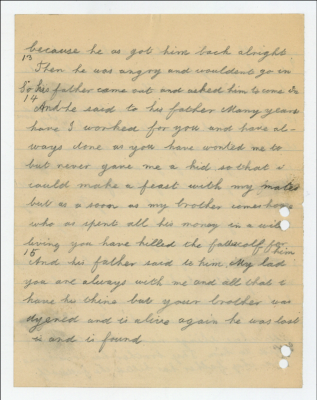 because he as got him back alright
13
Then he was angry and wouldent go in
So his father came out and asked him to come In
14
And he said to his father Many years
have I worked for you and have al-
ways done as you have wonted me to
but never gave me a kid so that I
could make a feast with my mates
but as a soon as my brother comes home
who as spent all his money in a wild
living you have killed the fatted calf for
him
15
And his father said to him My lad
you are always with me and all that I
have his thine but your brother was
dyened and is alive again he was lost
is and is found